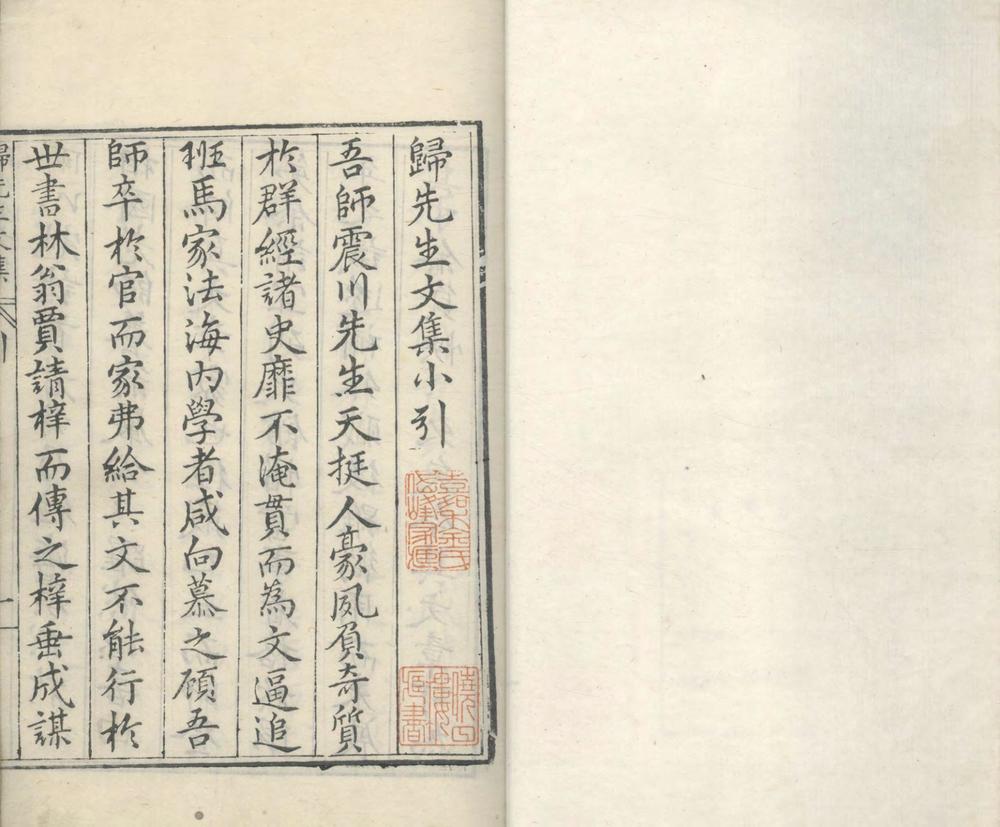 歸先生文集小引
吾師震川先生天挺人豪夙負奇質
於群經諸史靡不淹貫而為文逼追
班馬家法海內學者咸向慕之顧吾
師卒於官而家弗給其文不能行於
世書林翁賈請梓而傳之梓垂成謀
歸先生文集